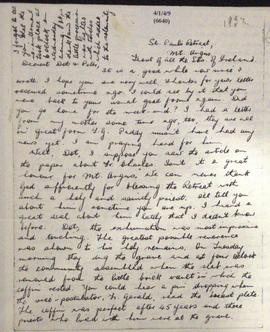 4/1/4/9
(6640)
1937
St. Paul's Retreat,
Mt. Argus,
Feast of all the Sts. of Ireland
Dearest Dot,
It is a good while now since I
wrote. I hope you are very well. Thanks for your letter
received sometime ago. I could see by it that you
were back to your usual good form again. Did
you go home for the week end? I had a letter
from my mother some time ago, too, they are all
in great form T.G. Paddy must have had any
news yet. I am praying hard for him.
Well Dot, I suppose you read the article on
the paper about Fr. Charles. Isn't it a great
honour for Mt. Argus. We can never thank
God sufficiently for blessing the Retreat with
such a holy and saintly priest. I'll tell you
about him sometime you are up. I heard a
great deal about him lately that I didn't know
before. Dot, the exhumation was most impressive
and touching. The greatest possible reverence
was shown to his holy remains. On Tuesday
morning they dug the grave and at four o'clock
the community assembled when the slab was
removed from the little brick vault in which the
coffin rested. You could hear a pin dropping when
the vice-postulator, Fr. Gerald, read the breast plate.
The coffin was perfect after 45 years and three
priests who lived with him were at the grave.